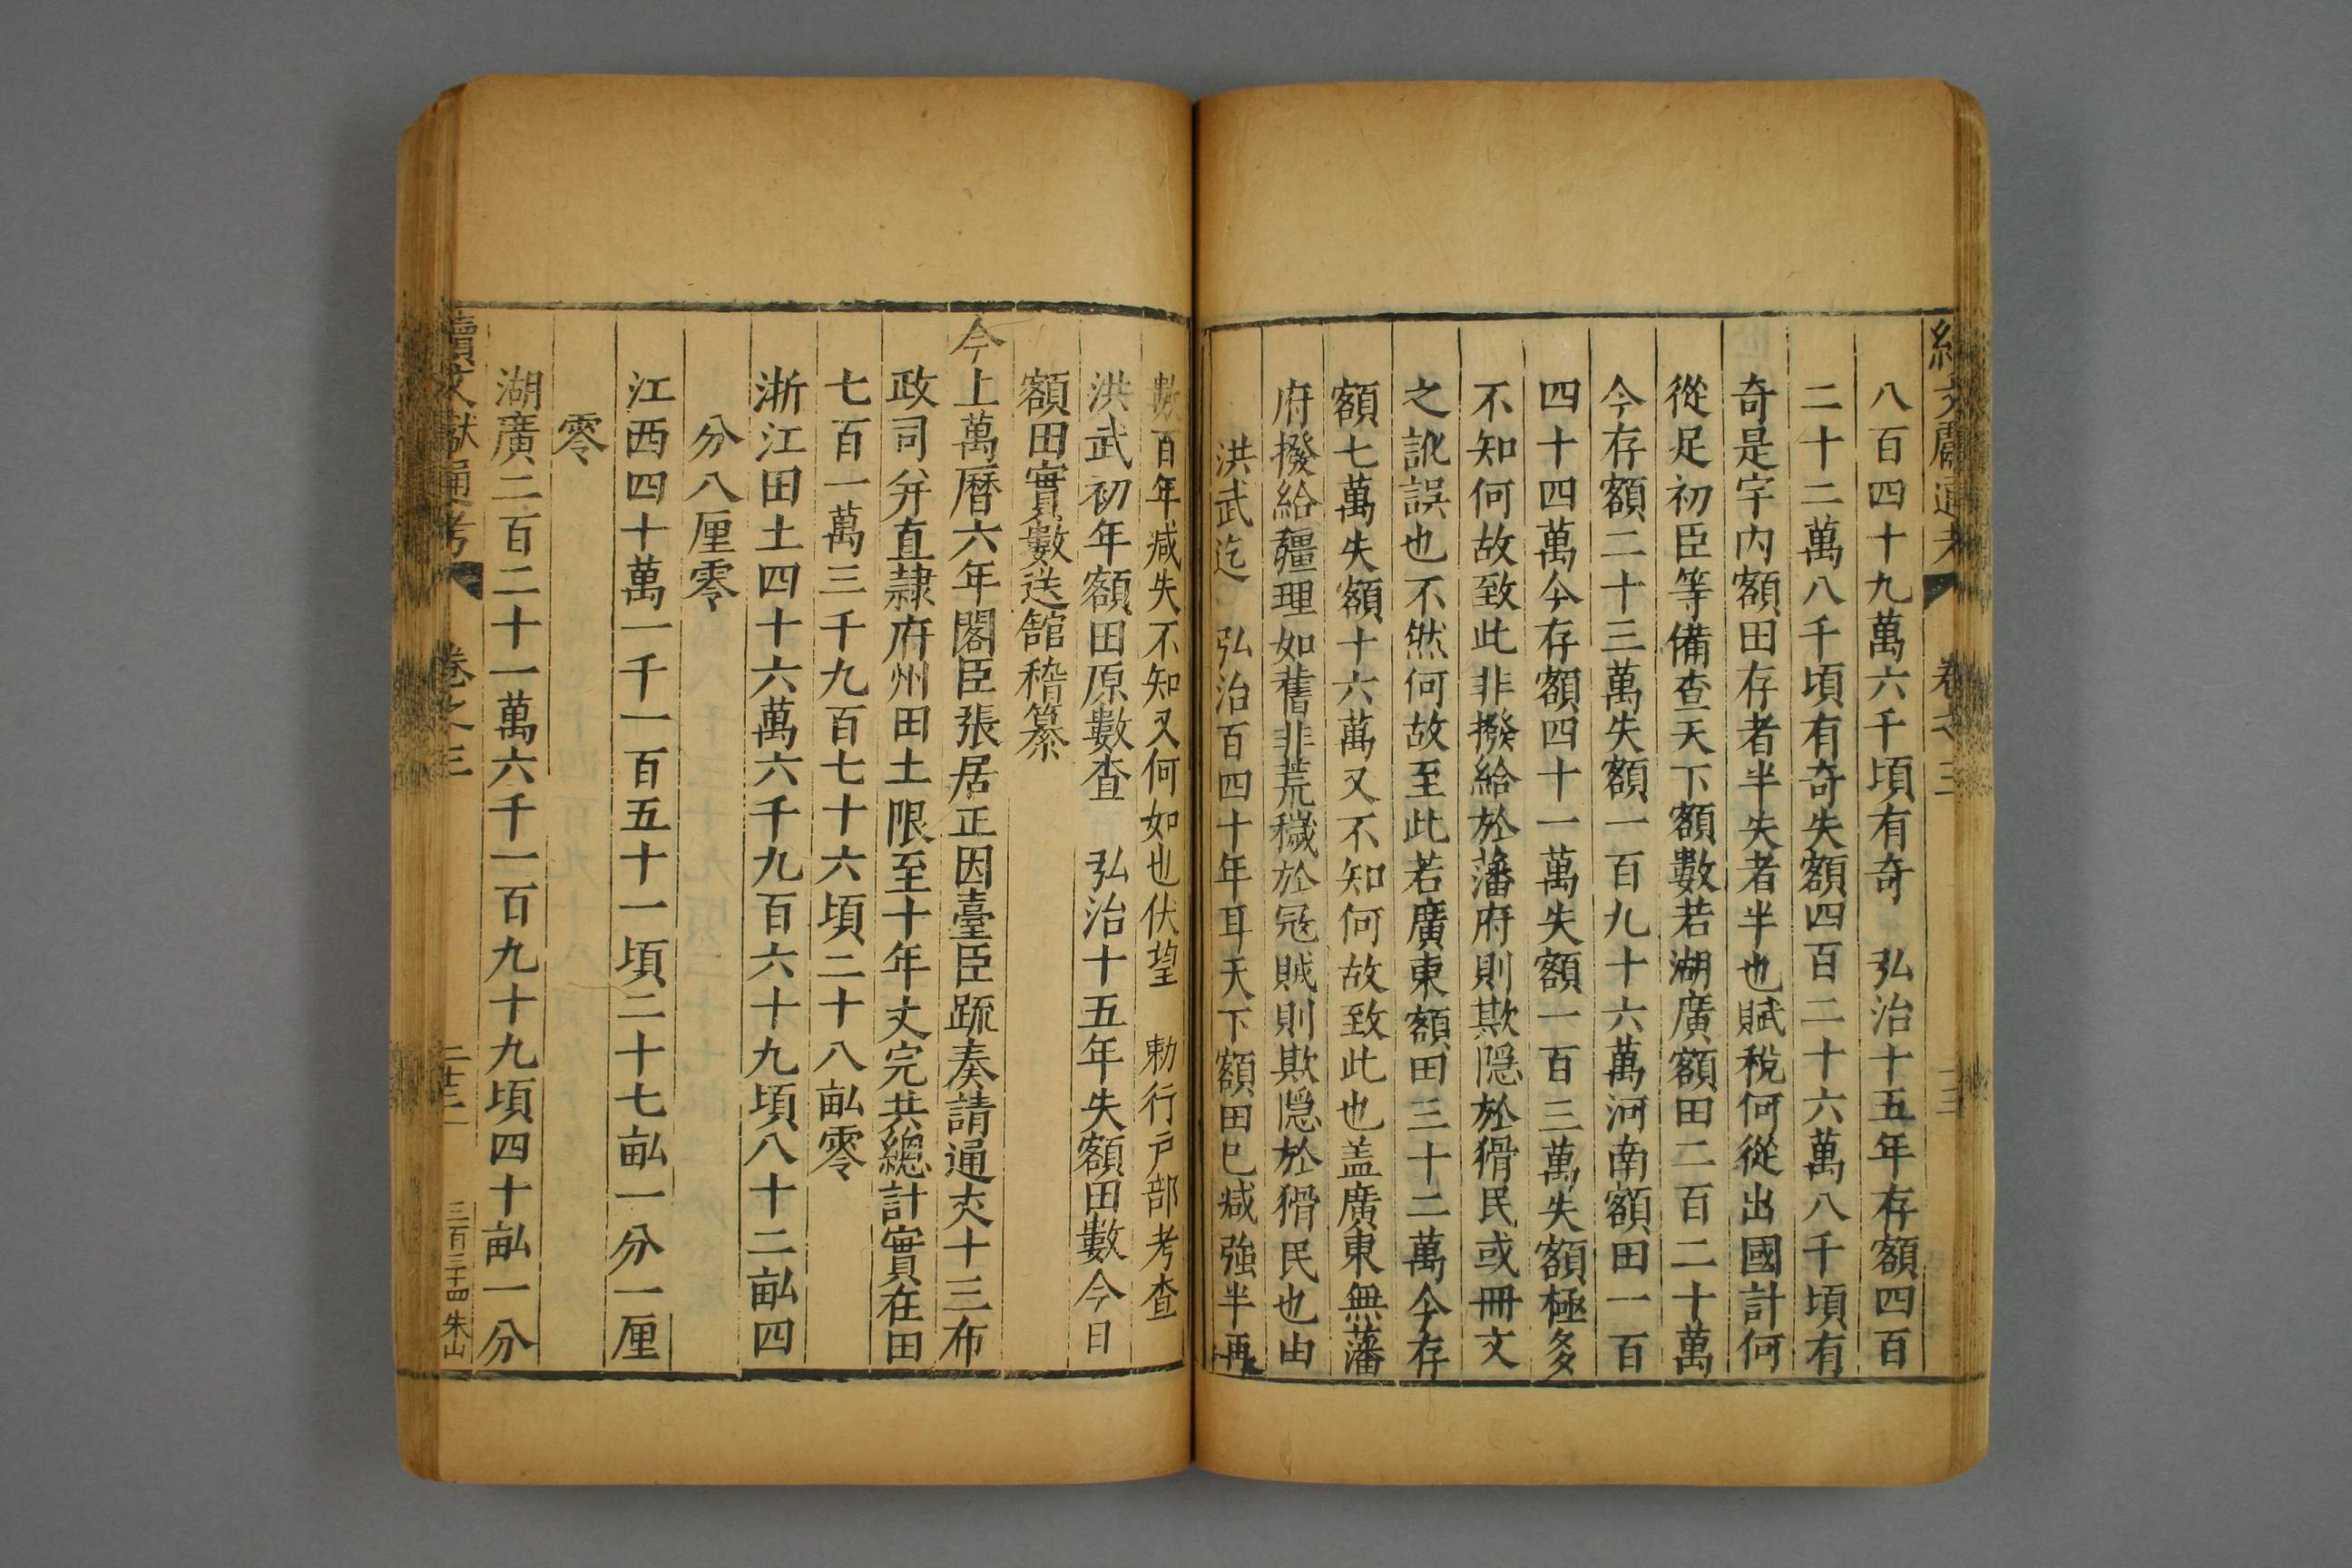 八百四十九萬六千頃有奇 弘治十五年存額四百
二十二萬八千頃有奇失額四百二十六萬八千頃有
奇是宇內額田存者半失者半也賦稅何從出國計何
從足初臣等備查天下額數若湖廣額田二百二十萬
今存額二十三萬失額一百九十六萬河南額田一百
四十四萬今存額四十一萬失額一百三萬失額極多
不知何故致此非撥給於藩府則欺隱於猾民或冊文
之訛誤也不然何故至此若廣東額田三十二萬今存
額七萬失額十六萬又不知何故致此也盖廣東無藩
府撥給疆理如舊非荒穢於冦賊則欺隱於猾民也由
洪武迄 弘治百四十年耳天下額田已减強半再
數百年减失不知又何如也伏望 勅行戶部考查
洪武初年額田原數查 弘治十五年失額田數今日
額田實數送舘稽纂
今上萬曆六年閣臣張居正因臺臣䟽奏請通丈十三布
政司并直隸府州田土限至十年丈完共總計實在田
七百一萬三千九百七十六頃二十八畝零
浙江田土四十六萬六千九百六十九頃八十二畝四
分八厘零
江西四十萬一千一百五十一頃二十七畝一分一厘
零
湖廣二百二十一萬六千一百九十九頃四十畝一分
續文獻通考 卷之三 二十二 三百三十四 朱山